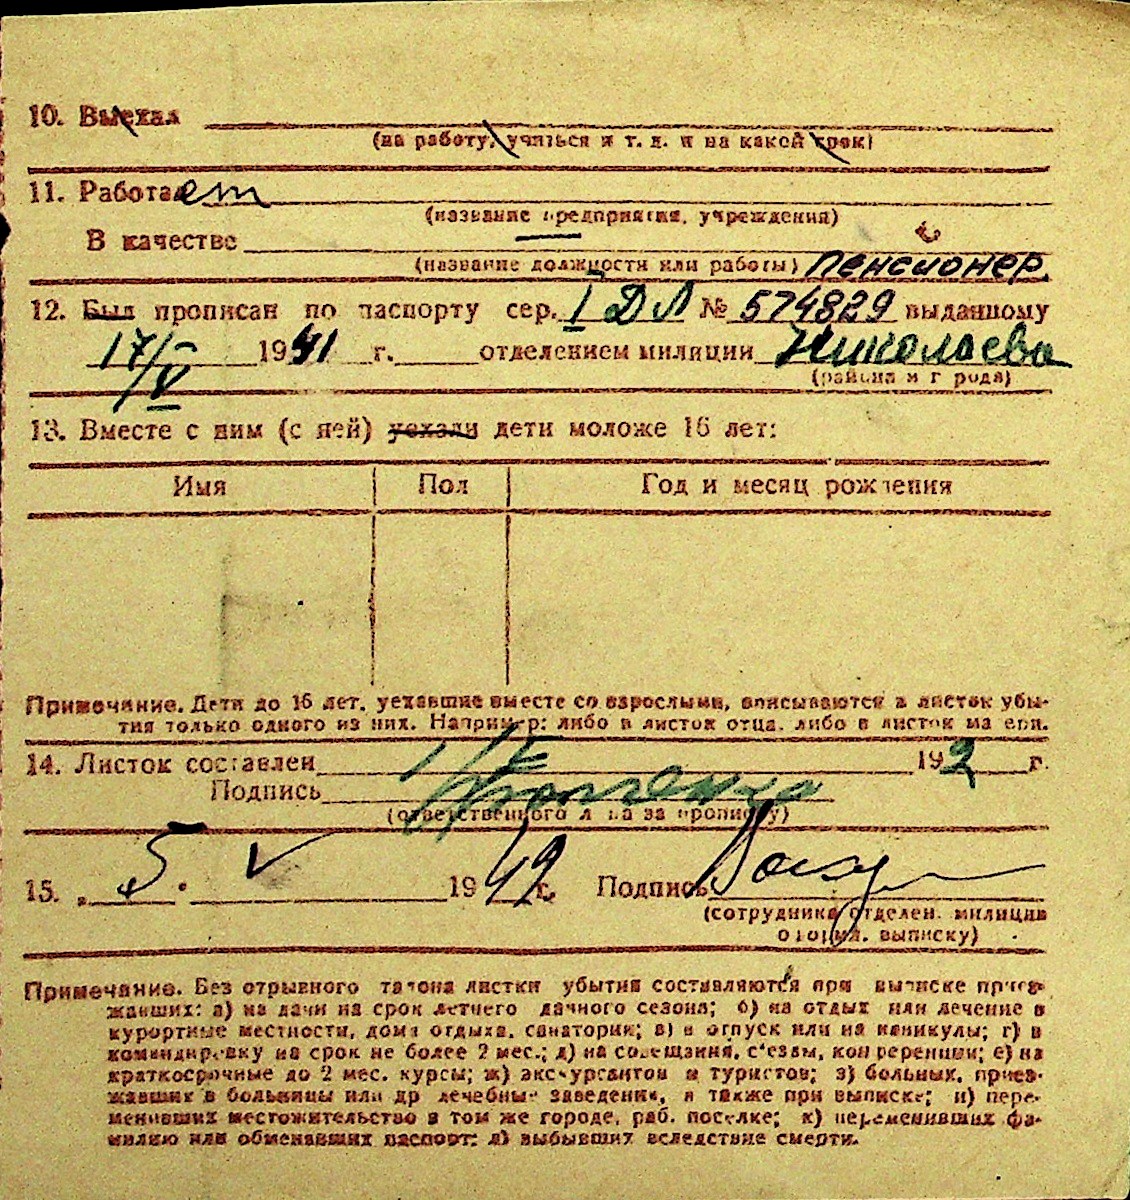 10. Выехал
(на работу, учиться и т. д. и на какой срок)
11. Работает
(название предприятия, учреждения)
В качестве
(название должности или работы) пенсионер
12. Был прописан по паспорту сер. I ДЛ № 574829 выданному
17/V 1941 г. отделением милиции Николаева
(района и города)
13. Вместе с ним (с ней) уехали дети моложе 16 лет:
Имя Пол Год и месяц рождения
Примечание. Дети до 16 лет, уехавшие вместе со взрослыми, вписываются в листок убы-
тия только одного из них. Например: либо в листок отца, либо в листок матери.
14. Листок составлен 192 г.
Подпись
(ответственного лица за прописку)
15. „5. V 1949 г. Подпись
(сотрудника отделен. милиции
оформ. выписку)
Примечание. Без отрывного талона листки убытия составляются при выписке приез-
жавших: а) на дачи на срок летнего дачного сезона; б) на отдых или лечение в
курортные местности, дома отдыха, санатории; в) в отпуск или на каникулы; г) в
командировку на срок не более 2 мес.; д) на совещания, с'езды, конференции; е) на
краткосрочные до 2 мес. курсы; ж) экскурсантов и туристов; з) больных, приез-
жавших в больницы или др лечебные заведения, а также при выписке; и) пере-
менивших местожительство в том же городе, раб. поселке; к) переменивших фа-
милию или обменявших паспорт; л) выбывших вследствие смерти.